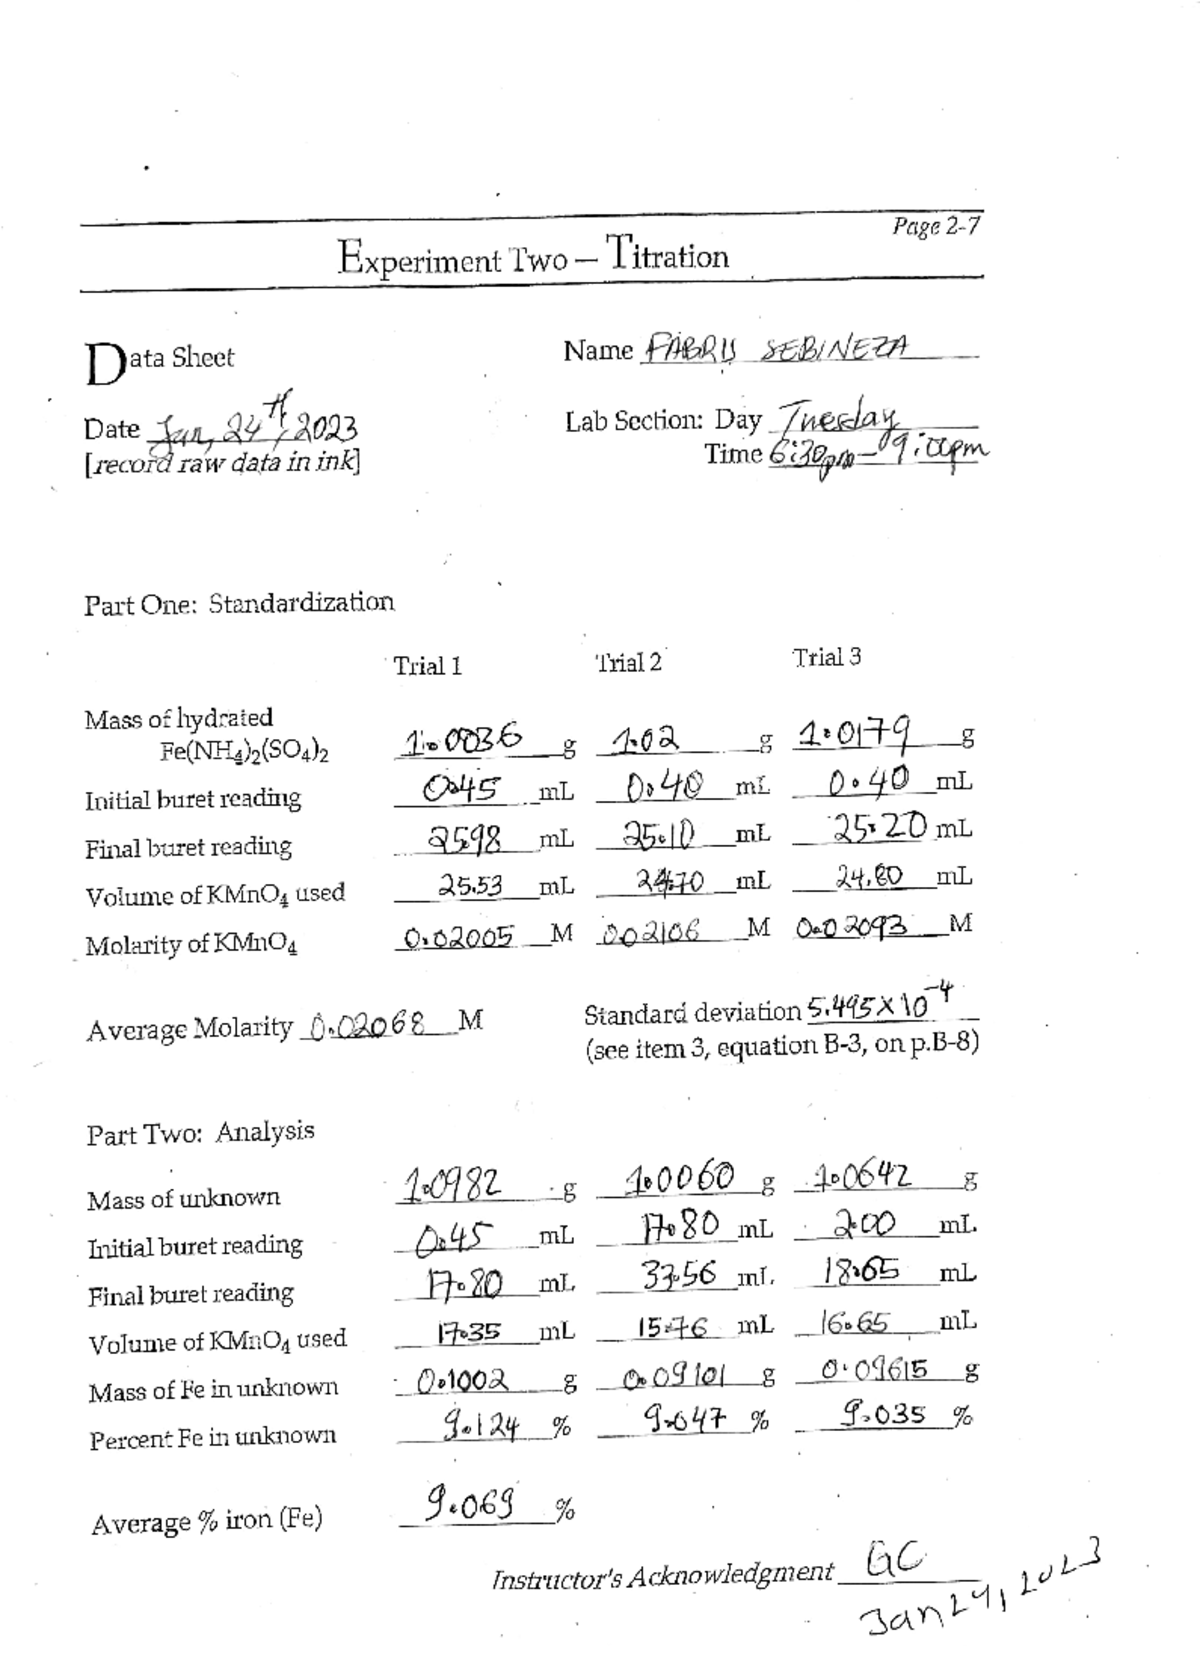 Page 2-7
Experiment Two – Titration
Data Sheet
Name FABRIS SEBINEZA
Date Jan, 24th, 2023
Lab Section: Day Tuesday
[record raw data in ink]
Time 6:30pm – 9:00pm
Part One: Standardization
Trial 1 Trial 2 Trial 3
Mass of hydrated
Fe(NH4)2(SO4)2 1.0036 g 1.02 g 1.0179 g
Initial buret reading 0.45 mL 0.40 mL 0.40 mL
Final buret reading 25.98 mL 25.10 mL 25.20 mL
Volume of KMnO4 used 25.53 mL 24.70 mL 24.80 mL
Molarity of KMnO4 0.02005 M 0.02106 M 0.02093 M
Average Molarity 0.02068 M Standard deviation 5.495 X 10^-4
(see item 3, equation B-3, on p.B-8)
Part Two: Analysis
Mass of unknown 1.0982 g 1.0060 g 1.0642 g
Initial buret reading 0.45 mL 17.80 mL 2.00 mL
Final buret reading 17.80 mL 33.56 mL 18.65 mL
Volume of KMnO4 used 17.35 mL 15.76 mL 16.65 mL
Mass of Fe in unknown 0.1002 g 0.09101 g 0.09615 g
Percent Fe in unknown 9.124 % 9.047 % 9.035 %
Average % iron (Fe) 9.069 %
Instructor's Acknowledgment GC
Jan 24, 2023